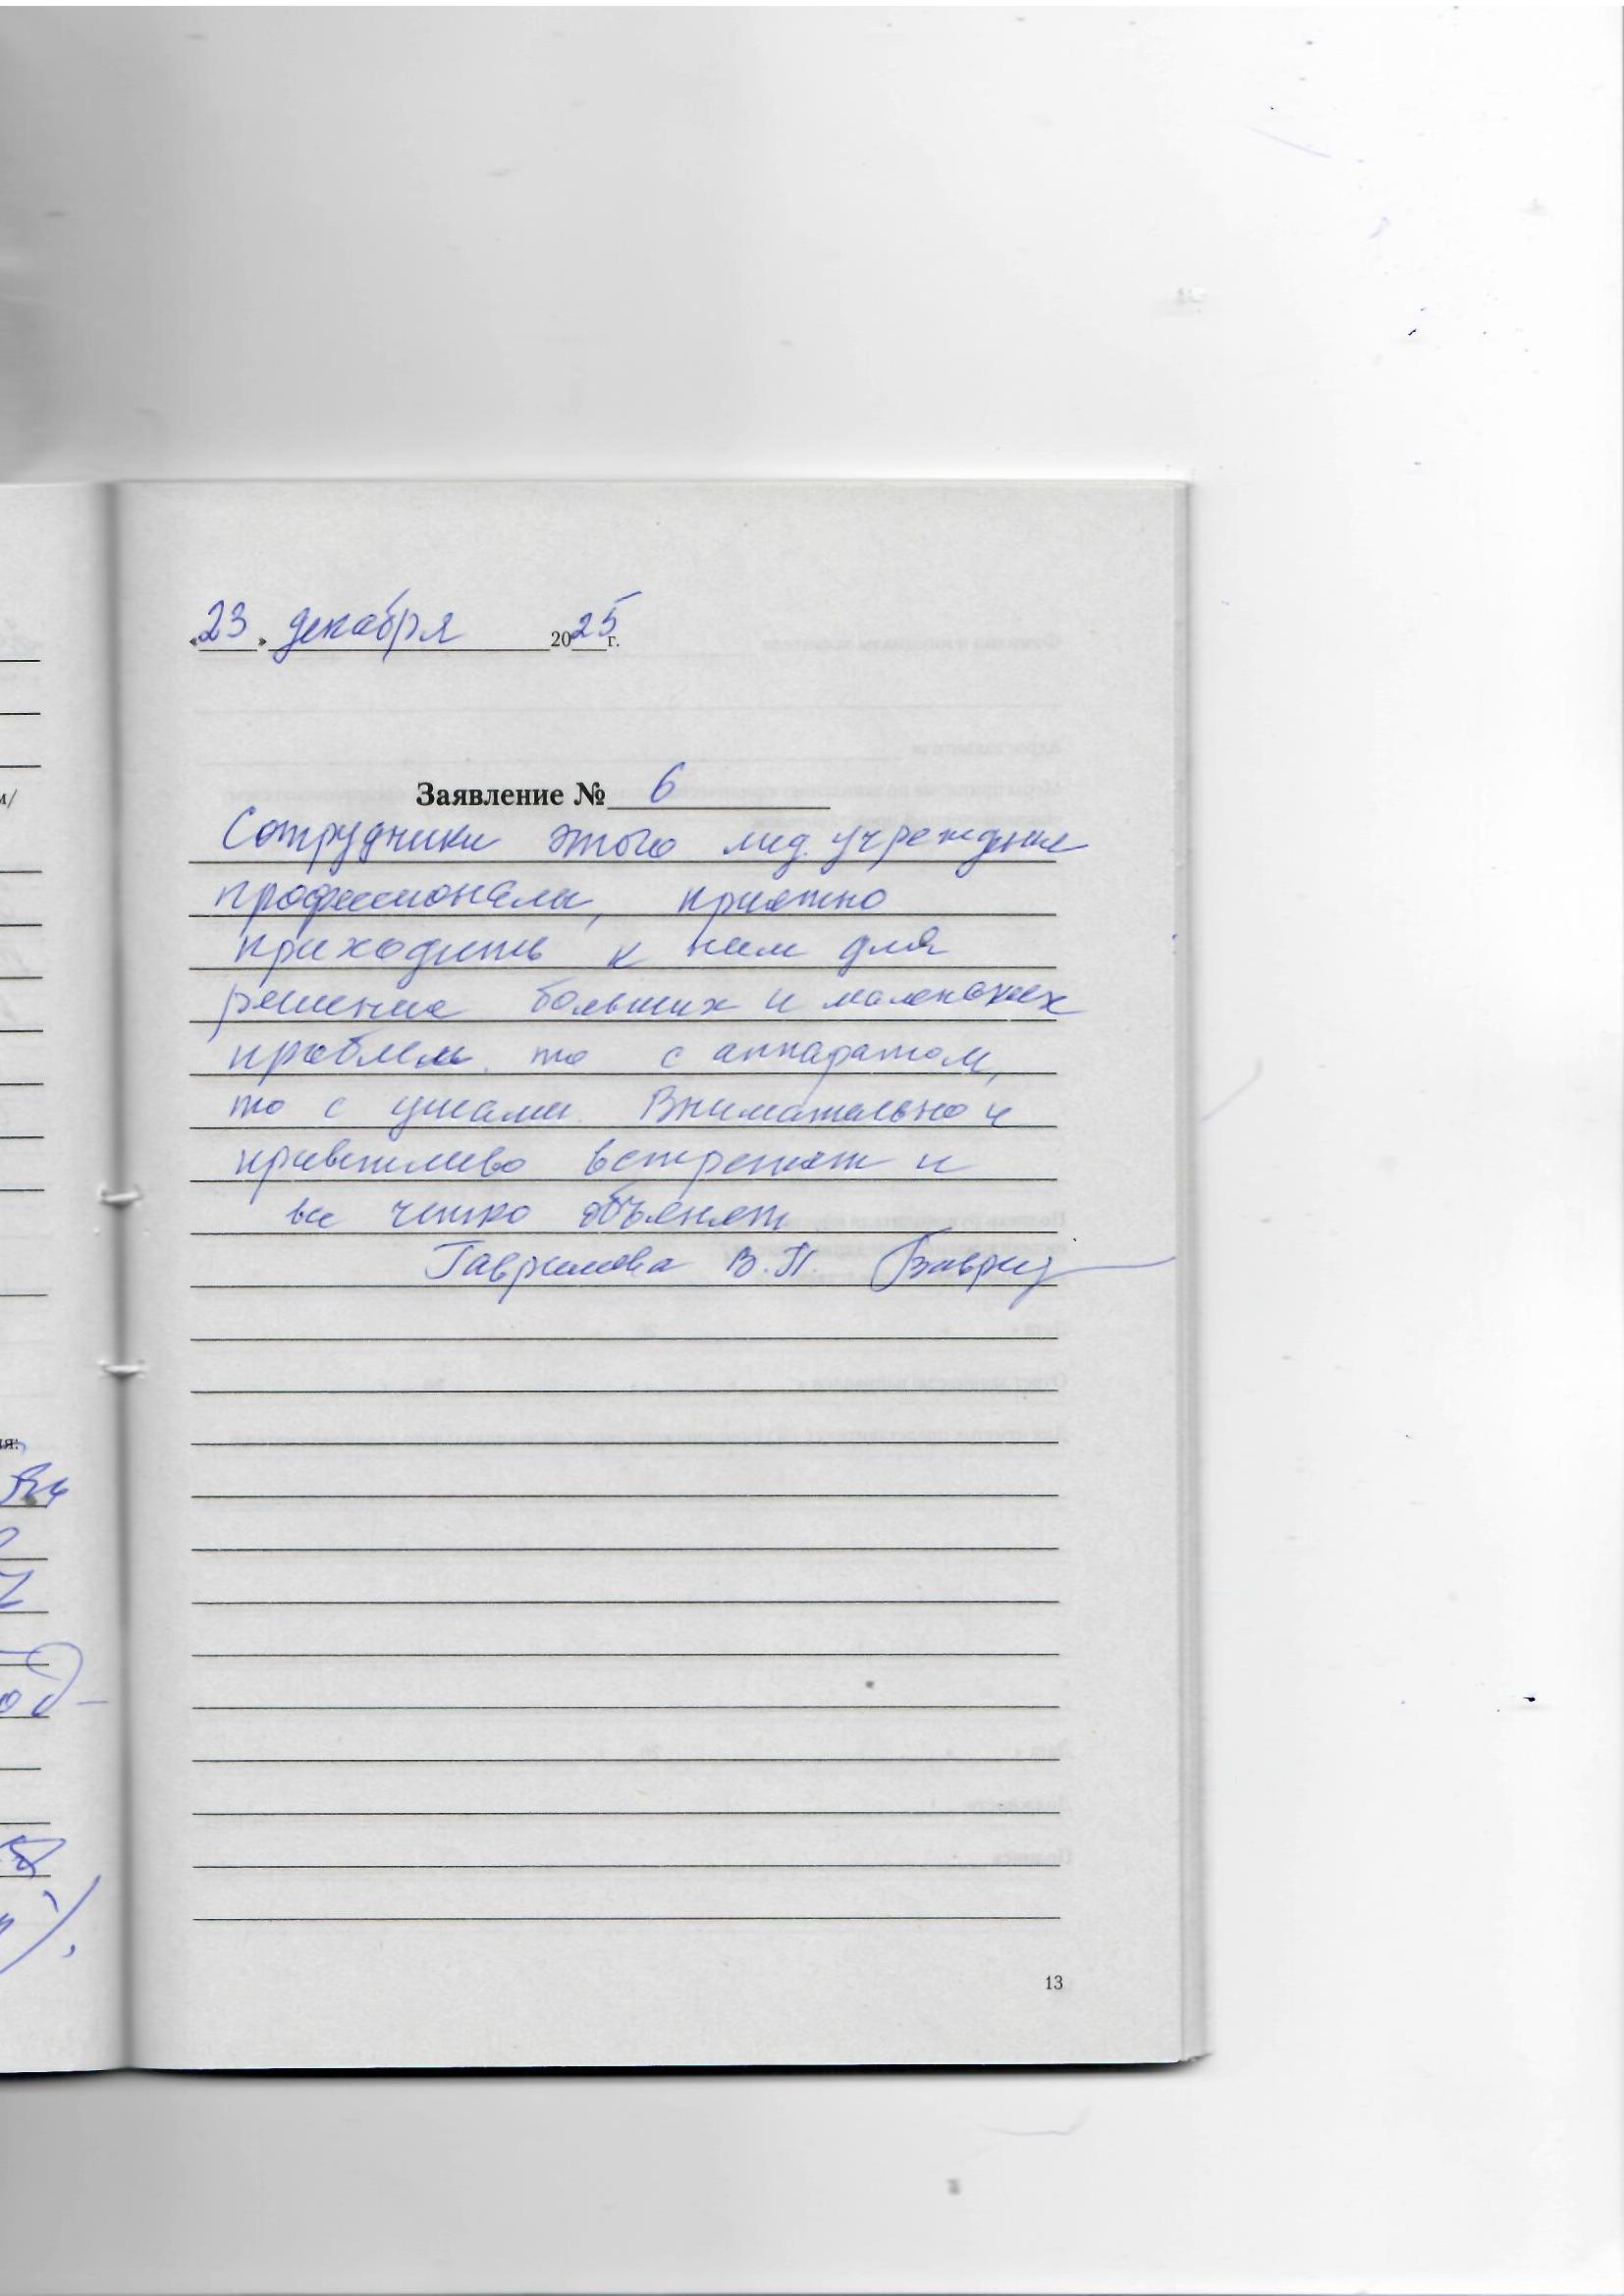 «23» декабря 2025г.
Заявление № 6
Сотрудники этого мед. учреждения
профессионалы, приятно
приходить к ним для
решения больших и маленьких
проблем. то с аппаратом,
то с ушами. Внимательно и
приветливо встретят и
все четко объяснят
Гаврилова В.П.
13